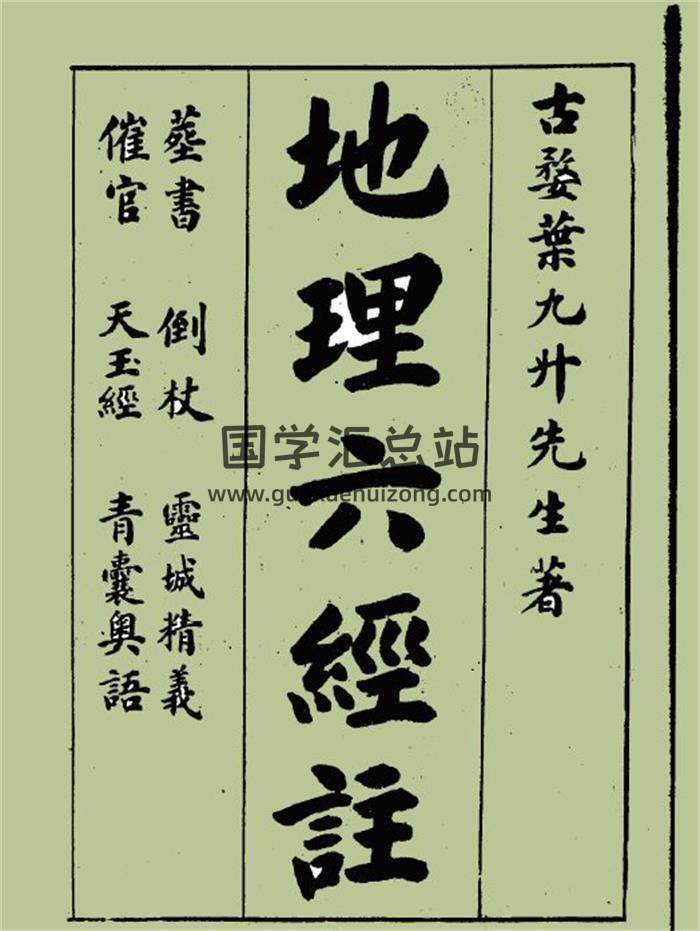 古婺葉九升先生著
地理六經註
塟書 倒杖 靈城精義
催官 天玉經 青囊奥語
国学汇总站
www.guoxuehuizong.com